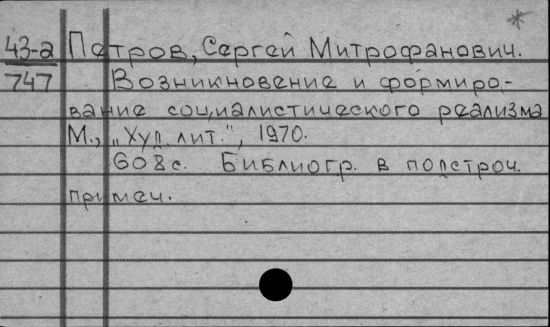 *
43-а Петров, Сергей Митрофанович.
747 Возникновение и формиро-
вание социалистического реализма
М., „Худ. лит.", 1970.
608 с. Библиогр. в подстроч.
примеч.